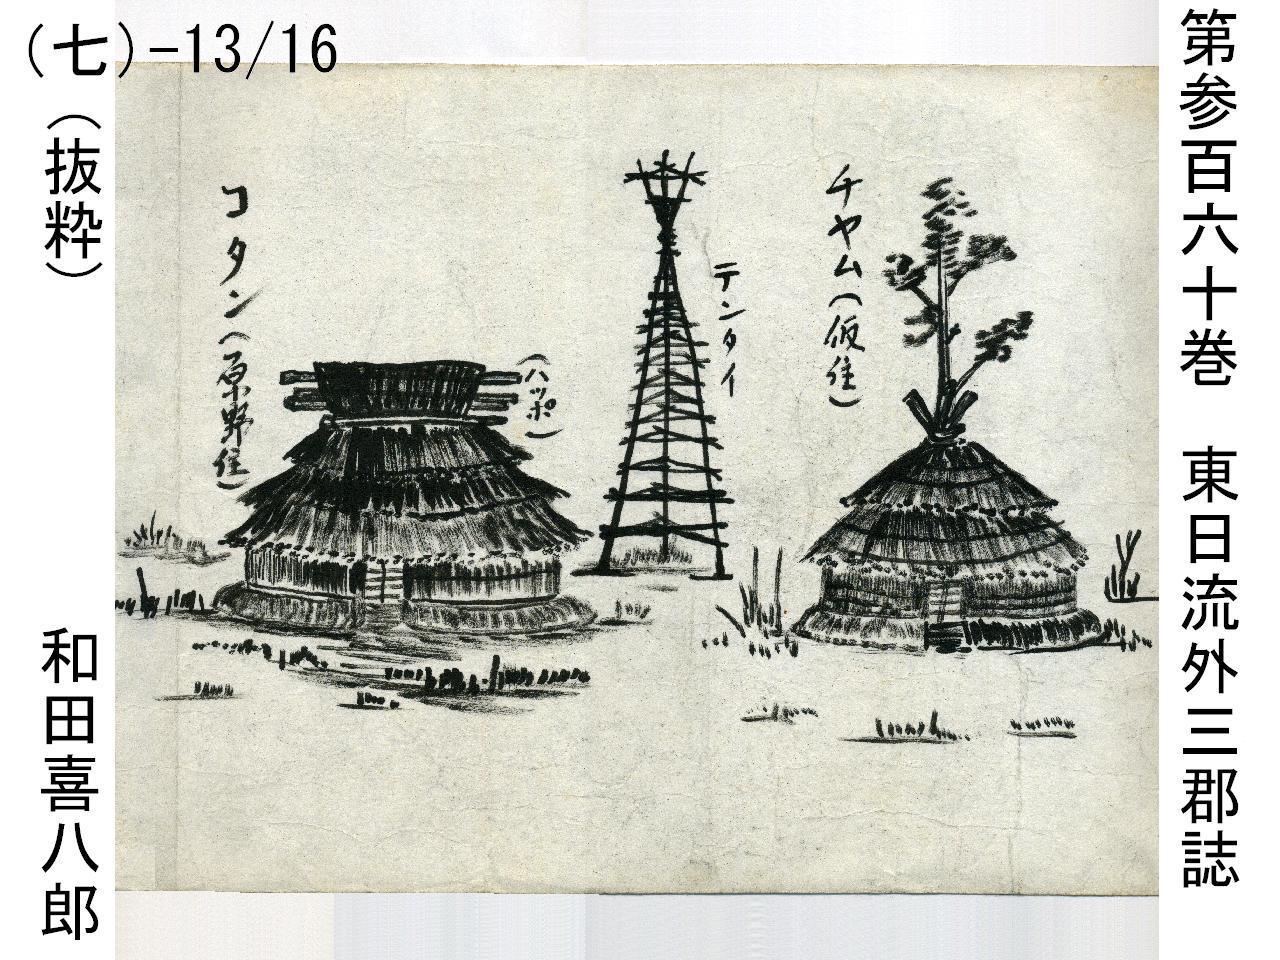 第参百六十巻　東日流外三郡誌
チヤム（仮住）
テンタイ
（ハッポ）
コタン（原野住）
（七）-13/16
（抜粋）
和田喜八郎